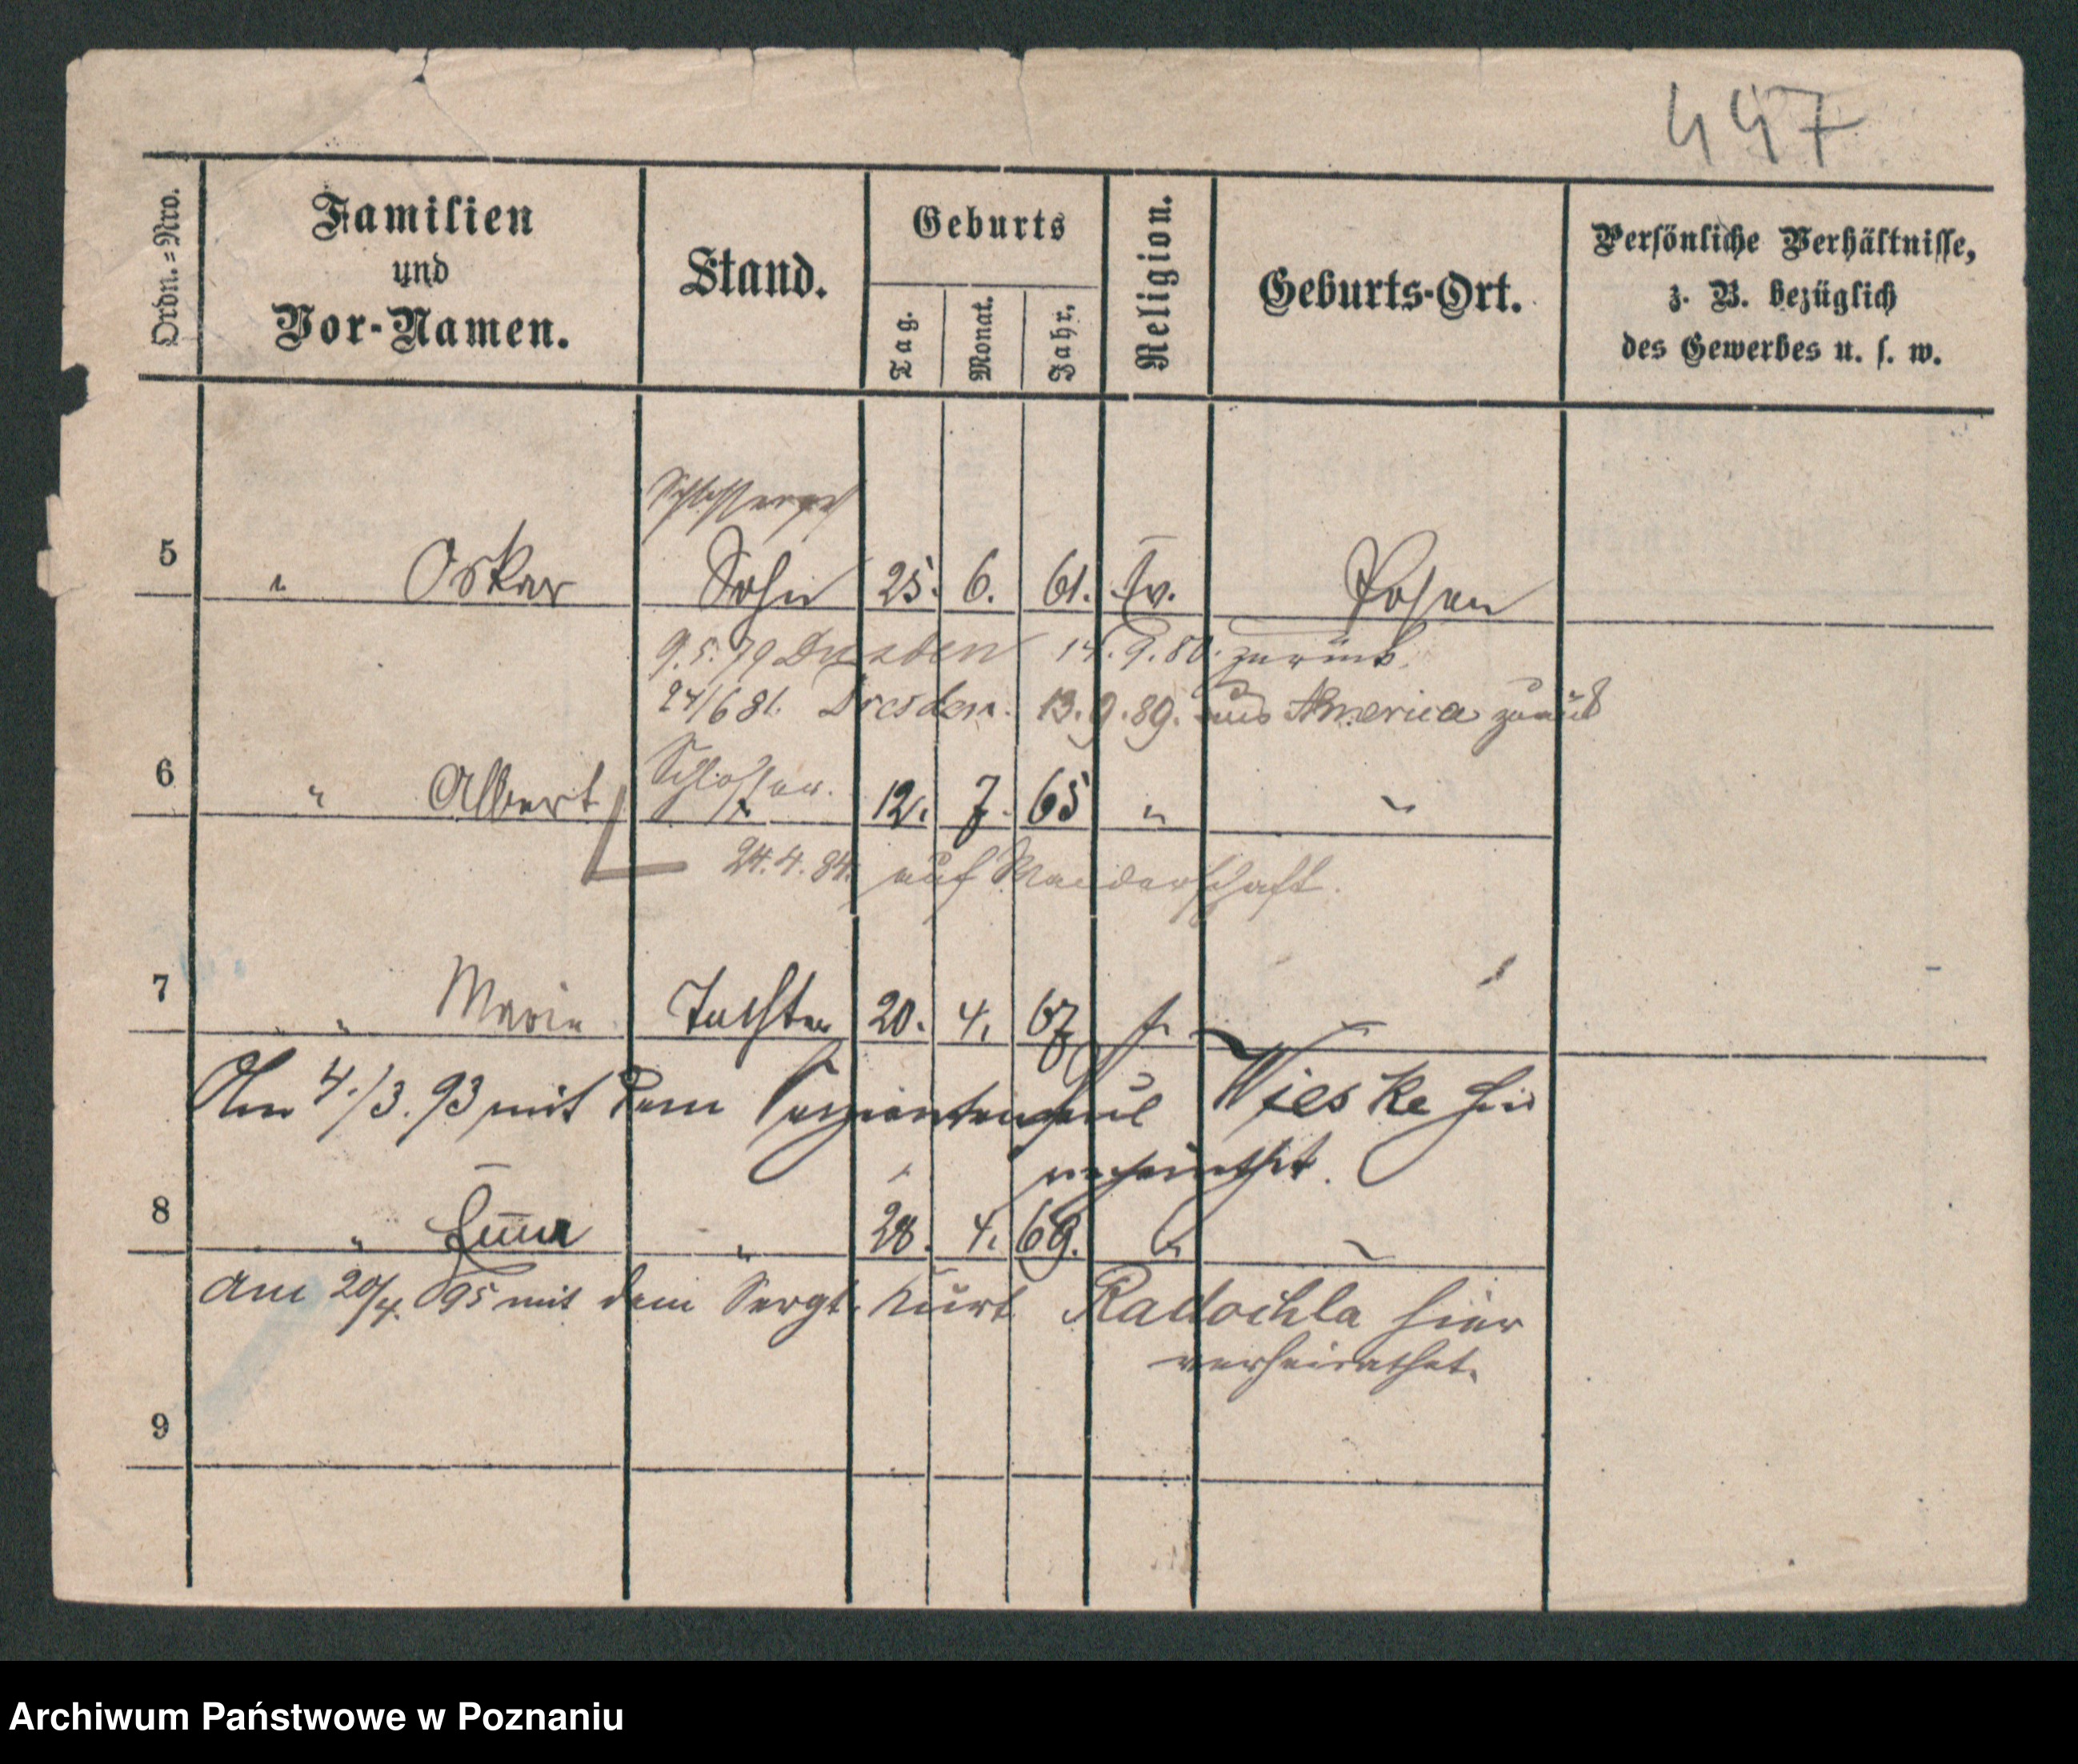 447
Ordn.=Nro.
Familien
und
Vor-Namen.
Stand.
Geburts
Tag.
Monat.
Jahr.
Religion.
Geburts-Ort.
Persönliche Verhältnisse,
z. B. bezüglich
des Gewerbes u. s. w.
5 " Oskar Sohn 25. 6. 61. Ev. Posen
9.5.79 Dresden 14.9.80. zurück
24/6 81. Dresden. 13.9.89. aus America zurück
Schlosser.
6 " Albert 12. 7. 65 " "
24.4.84. auf Wanderschaft.
7 " Marie Tochter 20. 4. 67
Am 4./3.93 mit dem Sergeanten Paul Wieske hier
verheirathet.
8 " Emma " 28. 4. 69. "
Am 20/4. 95 mit dem Sergt. Kurt Radochla hier
verheirathet.
9
Archiwum Państwowe w Poznaniu